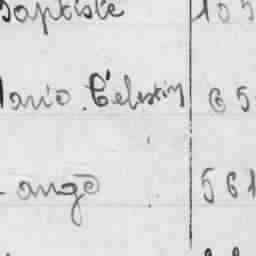 Baptiste 105
Mario Célestin 65
ange 561